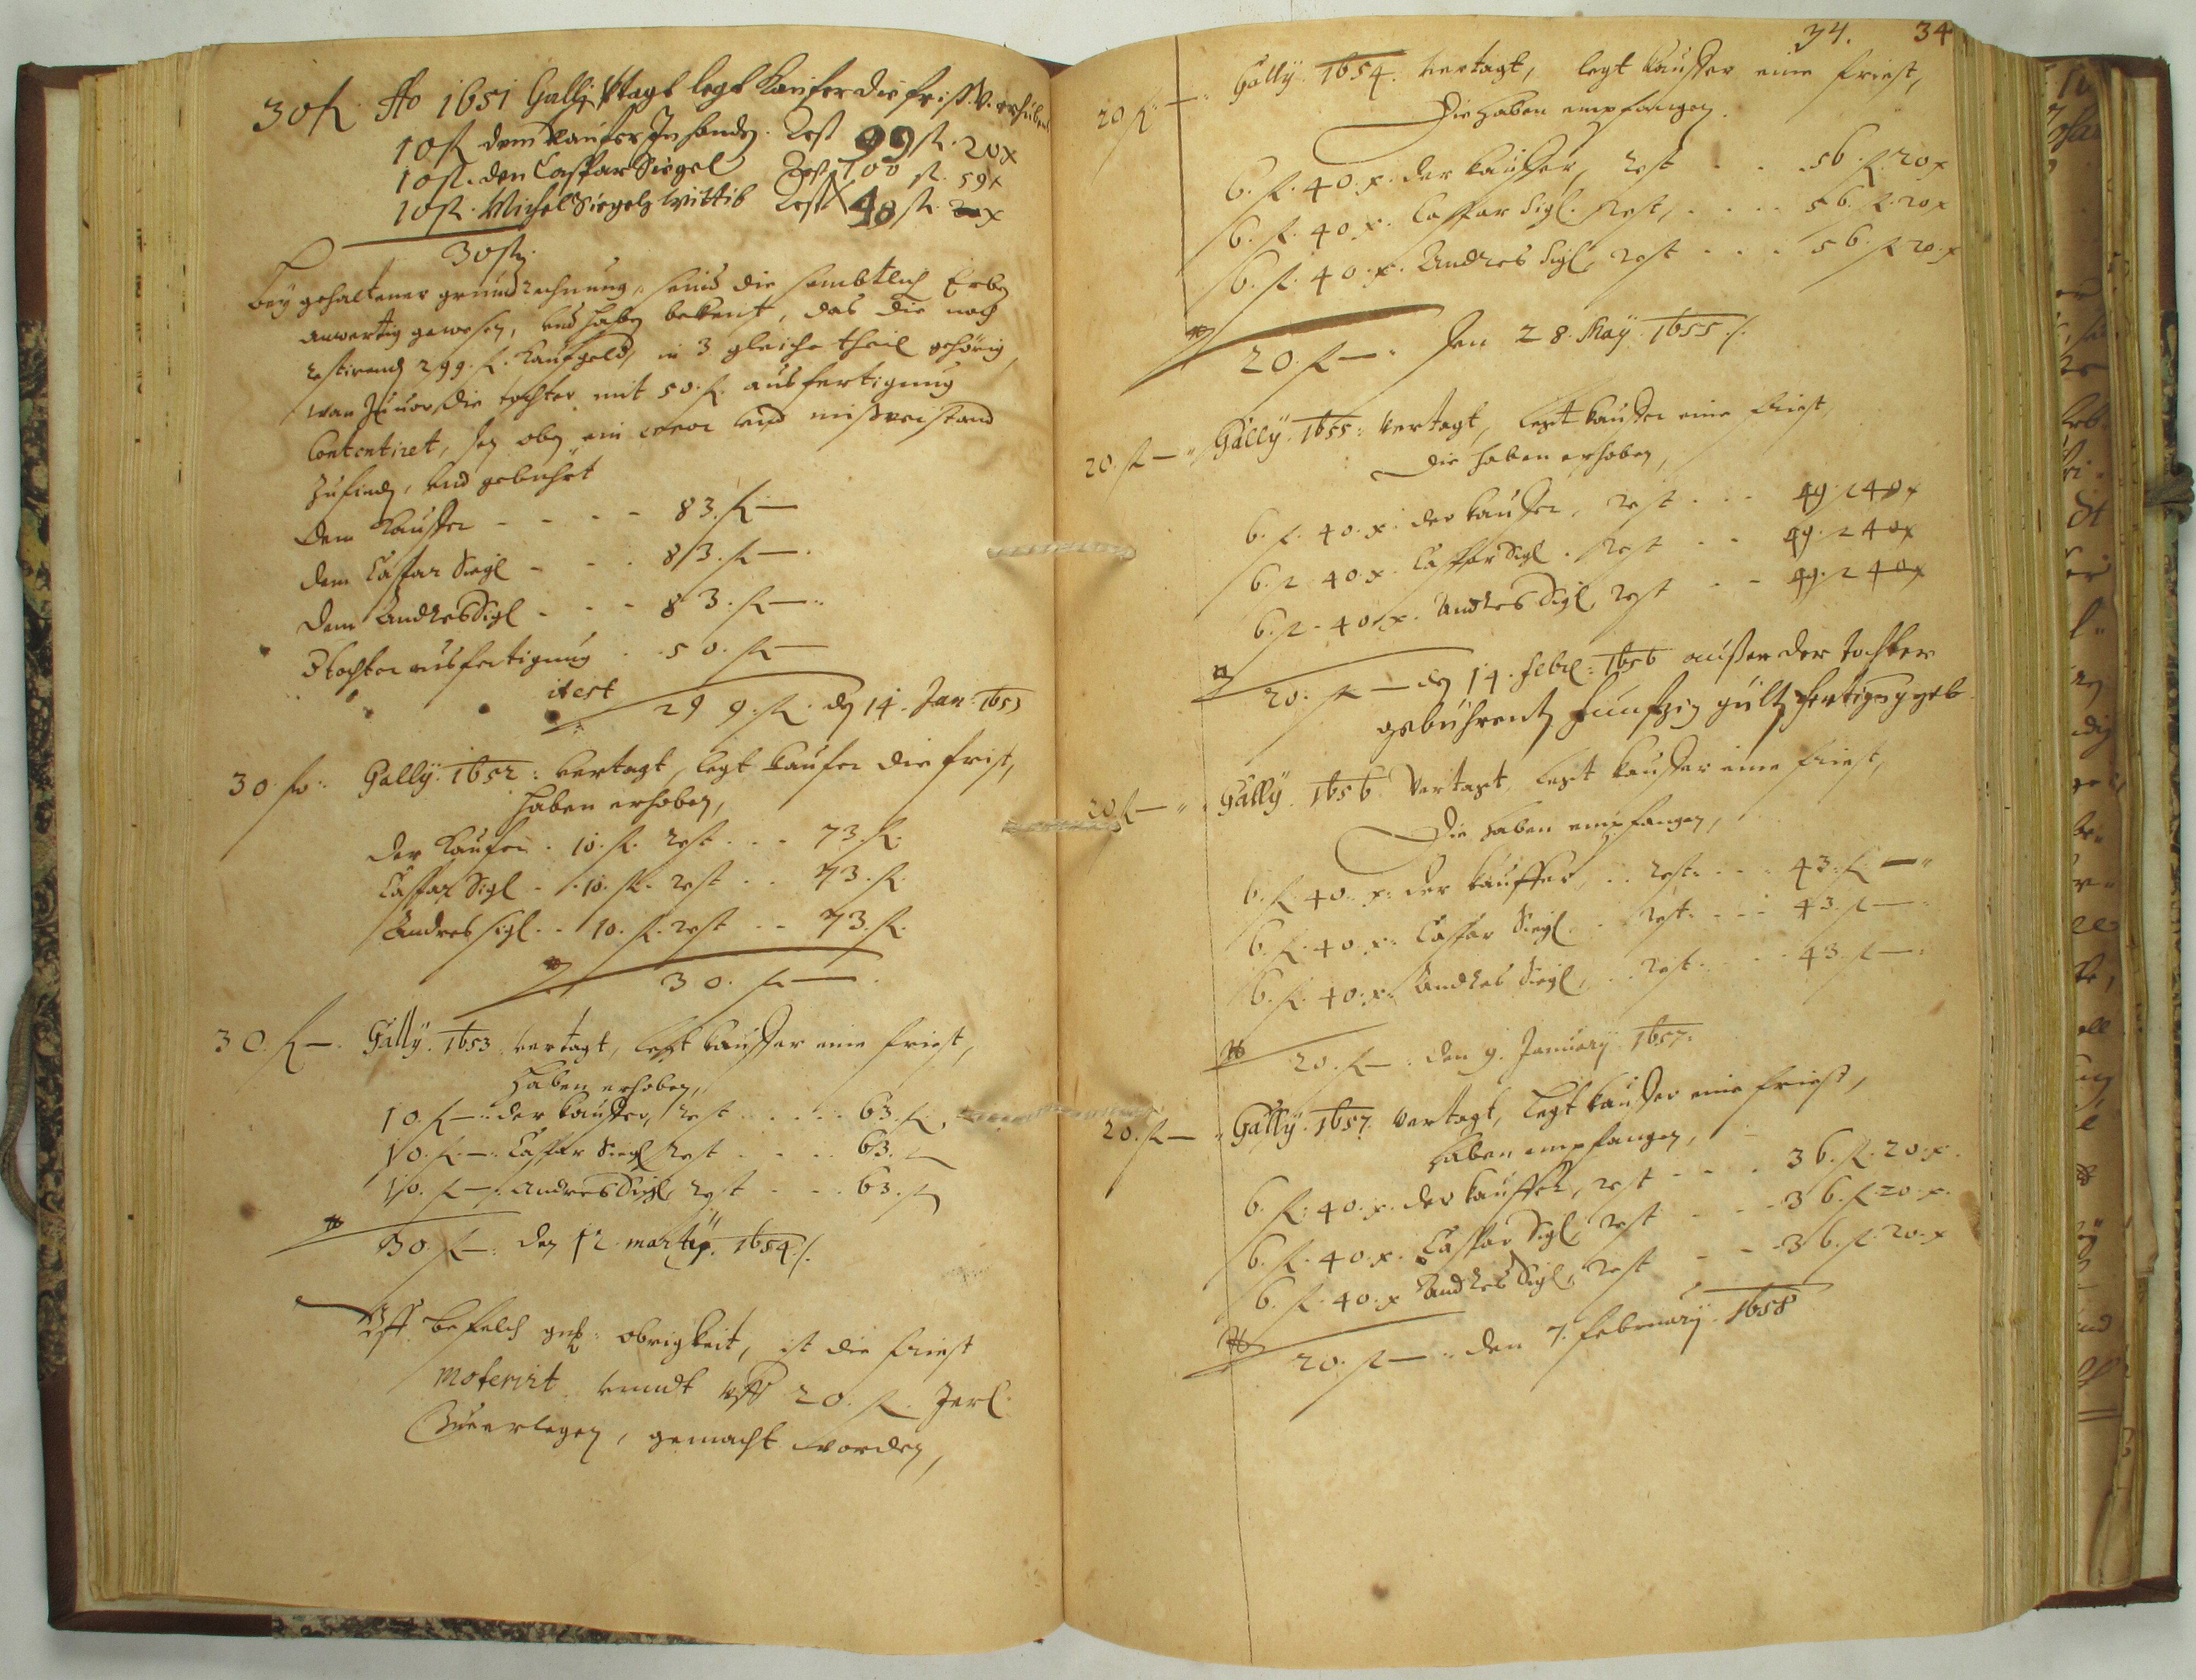 30 fl. Ao 1651 Gallj Vtagt legt Kaufer die frist. V. erhuben
10 fl dem Kaufer Inhanden. Rest 99 fl. 20 x
10 fl. den Caspar Siegel Rest 100 fl. 59 x
10 fl. Michel Siegels Wittib Rest 48 fl. x
30 fl.
Bey gehaltener grundrechnung, seind die sembtlich Erben
anwertig gewesen, vnd haben bekent, das die noch
restirend 299. fl. Kaufgeld, in 3 gleiche theil gehörig,
wan Zuuor die tochter mit 50. fl. ausfertigung
Contentiret, sey oben ein error vnd mißverstand
Zufinden, vnd gebuhrt
dem Kauffer - - - - 83. fl —
dem Caspar Siegl - - - 83. fl —.
dem Andres Sigl - - - 83. fl —
tochter ausfertigung - - 50. fl —
id est
299. fl. den 14. Jan: 1653
30 fl: Gally. 1652: vertagt, legt kaufer die frist,
haben erhoben,
der Kaufer. 10. fl. rest . . . 73. fl.
Caspar Sigl . . 10. fl. rest . . 73. fl.
Andres Sigl . . 10. fl. rest . . 73. fl.
30. fl —.
30. fl —. Gally. 1653. vertagt, legt kauffer eine friest,
haben erhoben,
10. fl —: der kauffer, rest . . . . . 63. fl.
10. fl. —: Caspar Siegl rest . . . . 63. fl
10. fl —: Andres Sigl, rest . . . 63. fl
30. fl —: den 12 martij. 1654 ./.
Vff befelch gn: obrigkeit, ist die friest
moterirt vnndt vff 20. fl. Jerl.
Zuerlegen, gemacht worden,
34. 34
20 fl: —: Gally. 1654. vertagt, legt kauffer eine friest,
Die haben empfangen.
6. fl. 40. x. der kauffer, rest . . 56. fl. 20 x
6. fl. 40. x. Caspar Sigl. rest, . . . . 56. fl. 20 x
6. fl. 40. x. Andres Sigl, rest . . . 56. fl 20. x
20. fl —: Den 28. May. 1655 ./.
20. fl — Gally. 1655: vertagt, legt kauffer eine friest,
die haben erhoben,
6. fl. 40. x. der kauffer, rest . . . 49. fl 40 x
6. fl. 40. x. Caspar Sigl. rest . . 49. fl 40 x
6. fl. 40. x. Andres Sigl, rest . . 49. fl 40 x
20. fl — den 14. Febr: 1656 ausser der tochter
gebuhrenten funfzig gult fertigung geb.
20 fl — Gally. 1656 Vertagt, legt kauffer eine friest,
Die haben empfangen,
6. fl. 40. x: der kauffer, . . rest: . . . 43. fl —
6. fl. 40. x: Caspar Siegl. . . rest: . . . 43. fl —
6. fl. 40. x: Andres Siegl, . . rest . . . . 43. fl —:
20. fl —: den 9. January 1657:
20. fl — Gally. 1657. vertagt, legt kauffer eine friest,
haben empfangen,
6. fl. 40. x. der kauffer, rest . . . . 36. fl. 20. x.
6. fl. 40. x. Caspar Sigl, rest . . . 36. fl 20. x.
6. fl. 40. x Andres Sigl, rest . . . 36. fl. 20. x
20. fl —: den 7. february. 1658